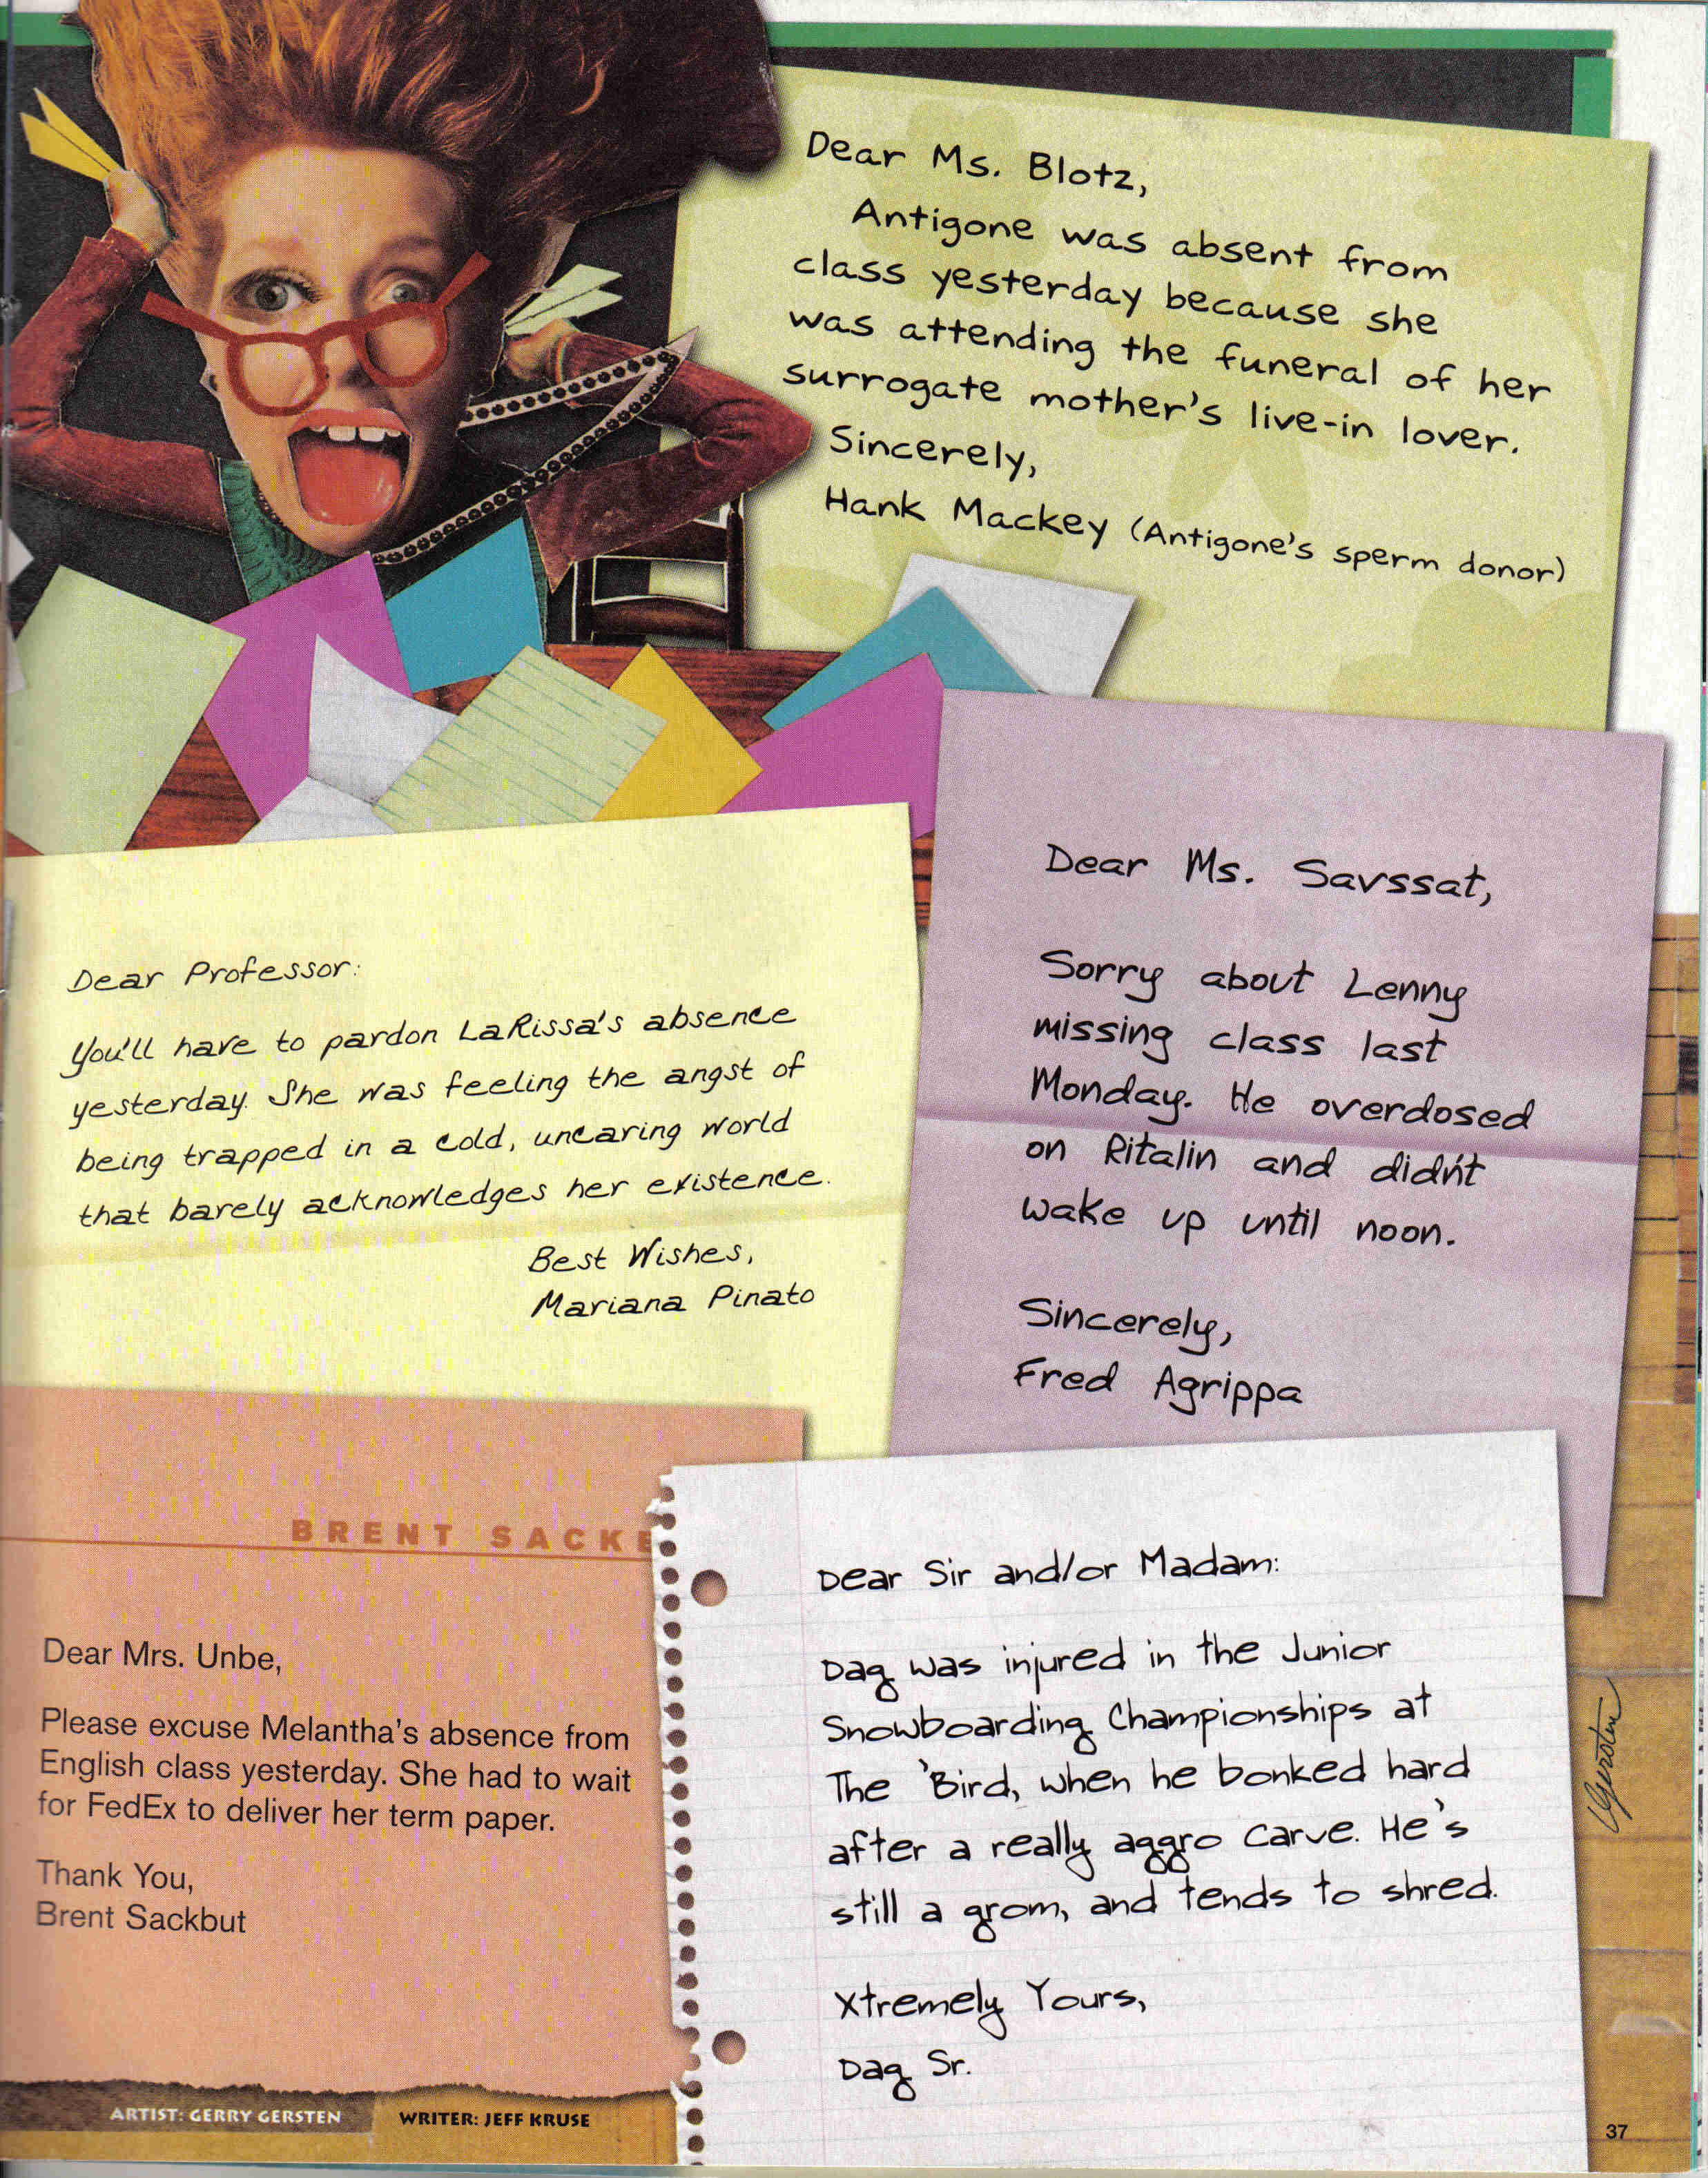 Dear Ms. Blotz,
Antigone was absent from
class yesterday because she
was attending the funeral of her
surrogate mother's live-in lover.
Sincerely,
Hank Mackey (Antigone's sperm donor)
Dear Professor:
You'll have to pardon LaRissa's absence
yesterday. She was feeling the angst of
being trapped in a cold, uncaring world
that barely acknowledges her existence.
Best Wishes,
Mariana Pinato
Dear Ms. Savssat,
Sorry about Lenny
missing class last
Monday. He overdosed
on Ritalin and didn't
wake up until noon.
Sincerely,
Fred Agrippa
BRENT SACKE
Dear Mrs. Unbe,
Please excuse Melantha's absence from
English class yesterday. She had to wait
for FedEx to deliver her term paper.
Thank You,
Brent Sackbut
Dear Sir and/or Madam:
Dag was injured in the Junior
Snowboarding Championships at
The 'Bird, when he bonked hard
after a really aggro carve. He's
still a grom, and tends to shred.
Xtremely Yours,
Dag Sr.
Gersten
ARTIST: GERRY GERSTEN
WRITER: JEFF KRUSE
37